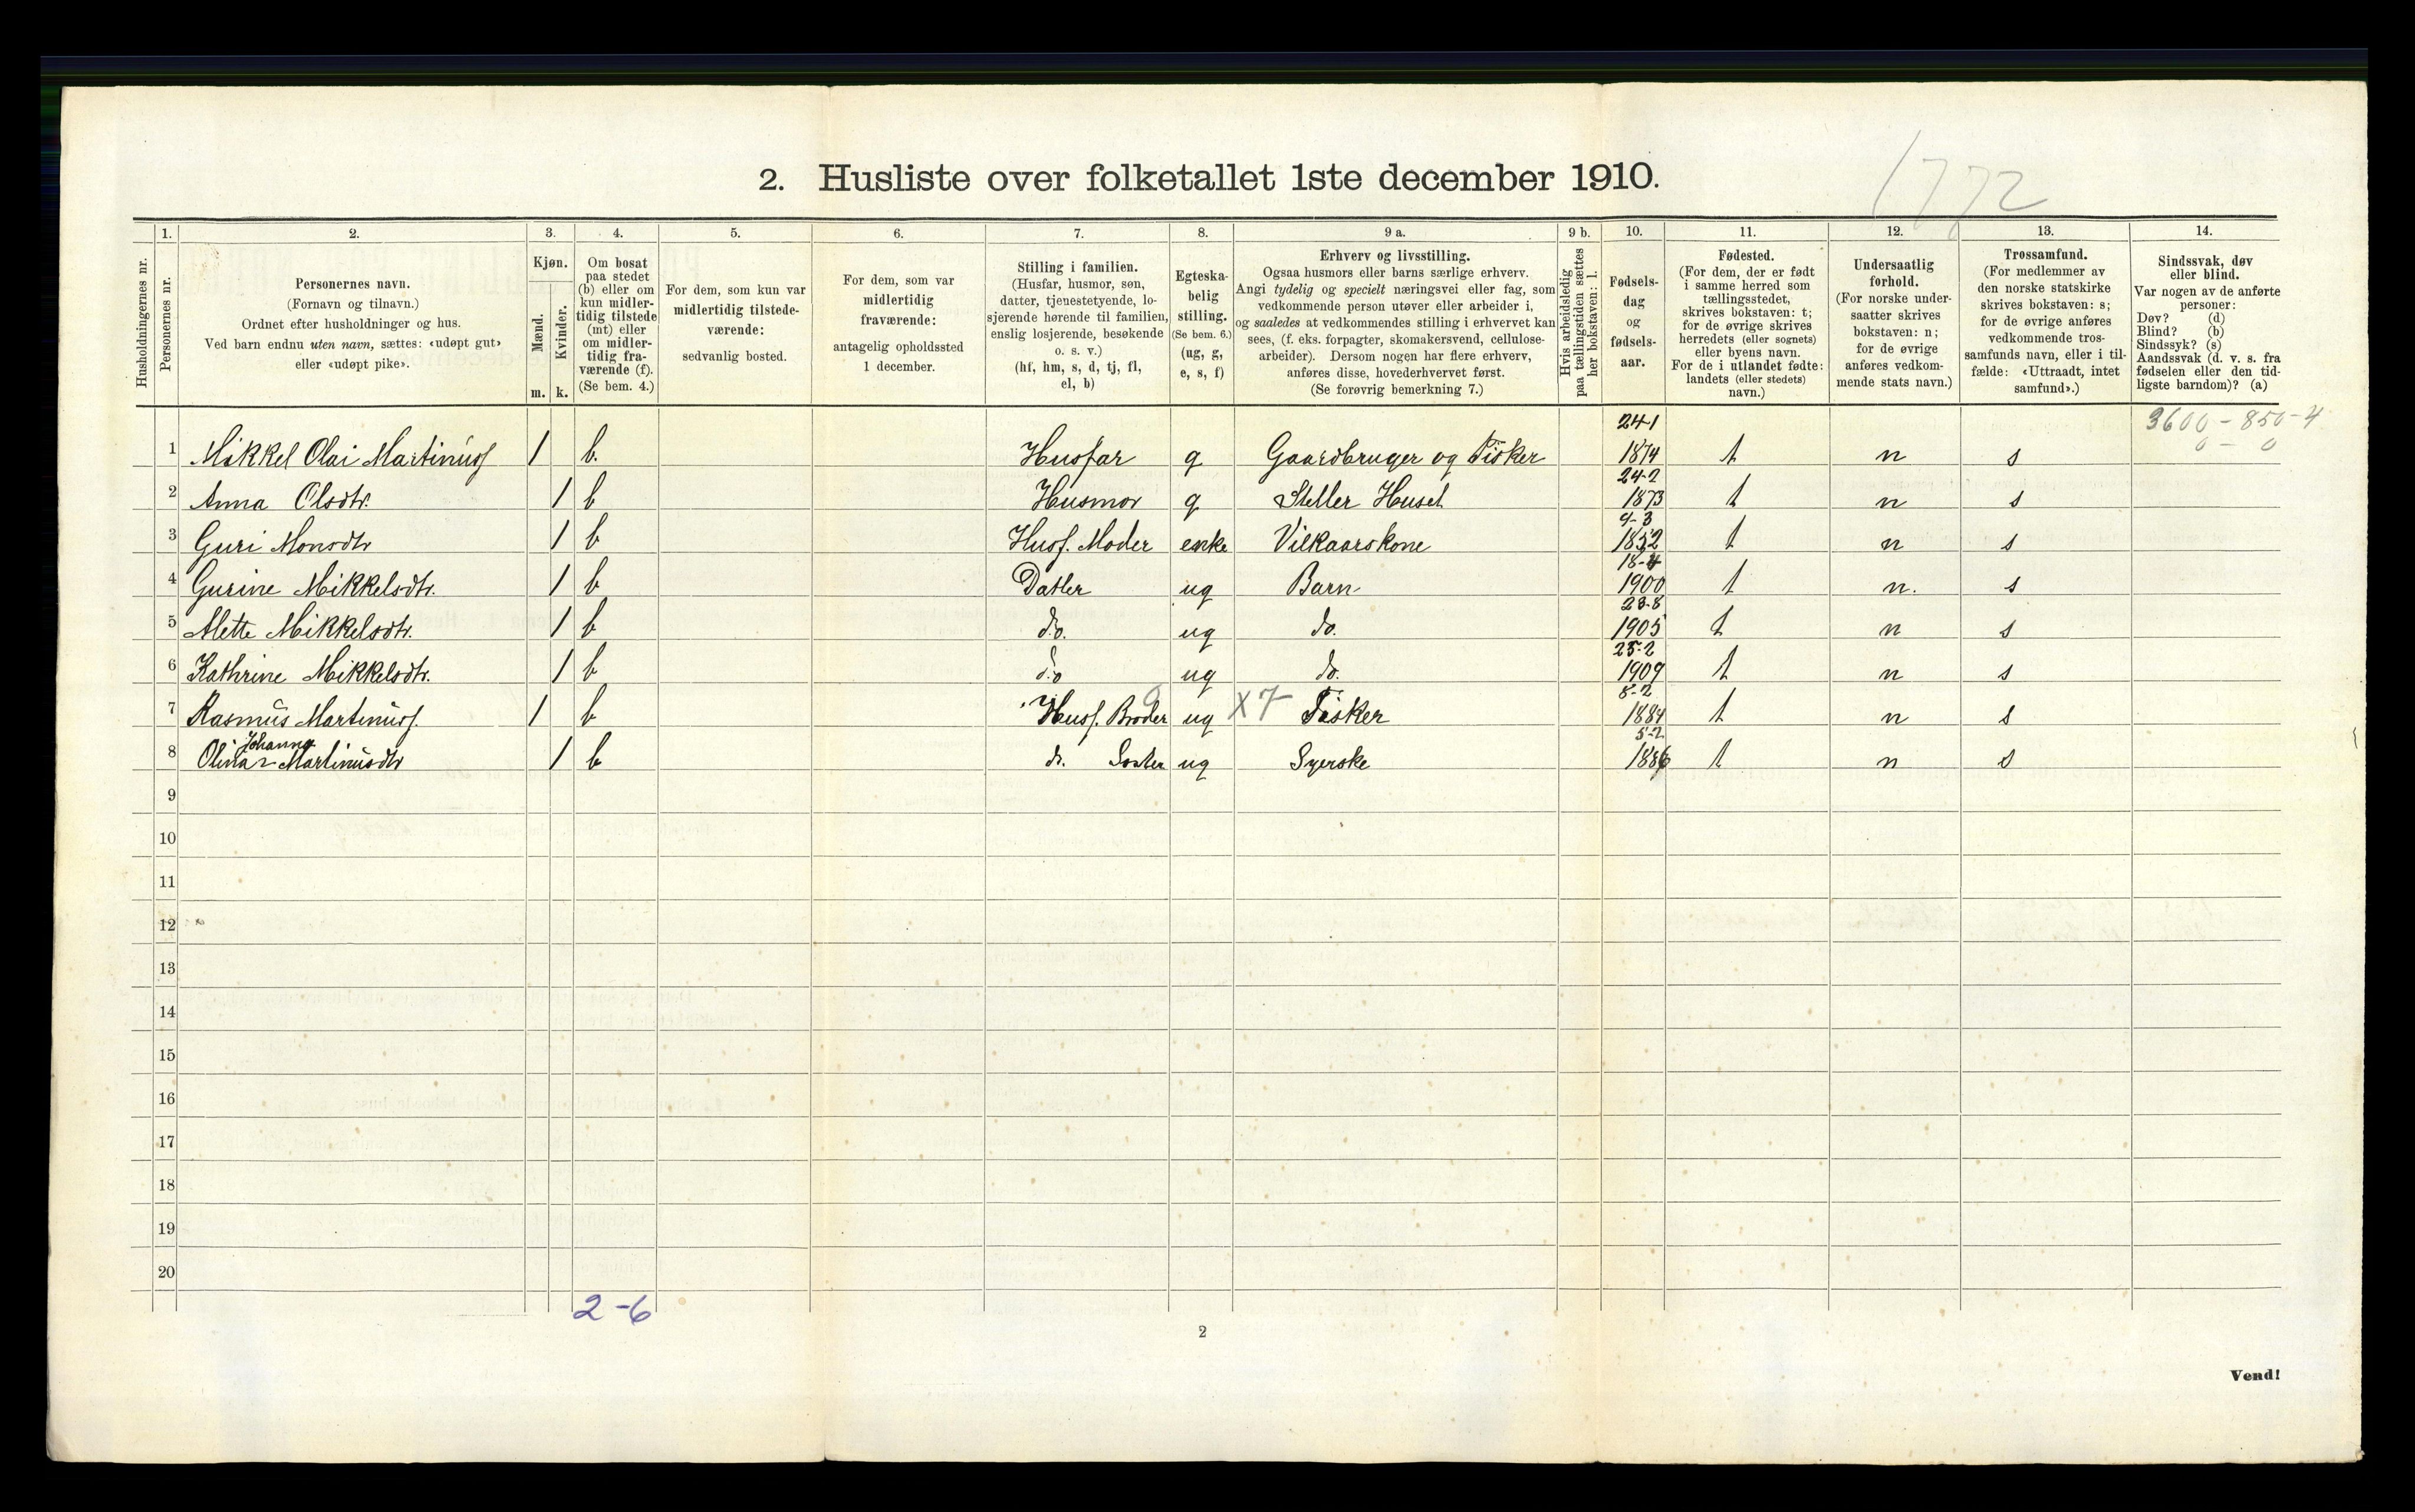 1772
2. Husliste over folketallet 1ste december 1910.
Husholdningernes nr.
1. Personernes nr.
2. Personernes navn. (Fornavn og tilnavn.) Ordnet efter husholdninger og hus. Ved barn endnu uten navn, sættes: «udøpt gut» eller «udøpt pike».
3. Kjøn. Mænd. m. Kvinder. k.
4. Om bosat paa stedet (b) eller om kun midlertidig tilstede (mt) eller om midlertidig fraværende (f). (Se bem. 4.)
5. For dem, som kun var midlertidig tilstedeværende: sedvanlig bosted.
6. For dem, som var midlertidig fraværende: antagelig opholdssted 1 december.
7. Stilling i familien. (Husfar, husmor, søn, datter, tjenestetyende, losjerende hørende til familien, enslig losjerende, besøkende o. s. v.) (hf, hm, s, d, tj, fl, el, b)
8. Egteskabelig stilling. (Se bem. 6.) (ug, g, e, s, f)
9 a. Erhverv og livsstilling. Ogsaa husmors eller barns særlige erhverv. Angi tydelig og specielt næringsvei eller fag, som vedkommende person utøver eller arbeider i, og saaledes at vedkommendes stilling i erhvervet kan sees, (f. eks. forpagter, skomakersvend, cellulosearbeider). Dersom nogen har flere erhverv, anføres disse, hovederhvervet først. (Se forøvrig bemerkning 7.)
9 b. Hvis arbeidsledig paa tællingstiden sættes her bokstaven: l.
10. Fødselsdag og fødselsaar.
11. Fødested. (For dem, der er født i samme herred som tællingsstedet, skrives bokstaven: t; for de øvrige skrives herredets (eller sognets) eller byens navn. For de i utlandet fødte: landets (eller stedets) navn.)
12. Undersaatlig forhold. (For norske undersaatter skrives bokstaven: n; for de øvrige anføres vedkommende stats navn.)
13. Trossamfund. (For medlemmer av den norske statskirke skrives bokstaven: s; for de øvrige anføres vedkommende trossamfunds navn, eller i tilfælde: «Uttraadt, intet samfund».)
14. Sindssvak, døv eller blind. Var nogen av de anførte personer: Døv? (d) Blind? (b) Sindssyk? (s) Aandssvak (d. v. s. fra fødselen eller den tidligste barndom)? (a)
3600 - 850 - 4
0 - 0
1 Mikkel Olai Martinusf 1 b. Husfar g Gaardbruger og Fisker 24-1 1874 t n s
2 Anna Olsdtr. 1 b Husmor g Steller Huset 24-2 1873 t n s
3 Guri Monsdtr 1 b Husf. Moder enke Vilkaarskone 9-3 1852 t n s
4 Gurine Mikkelsdtr. 1 b Datter ug Barn 18-4 1900 t n. s
5 Mette Mikkelsdtr. 1 b do. ug do. 23-8 1905 t n s
6 Kathrine Mikkelsdtr. 1 b do ug do. 25-2 1909 t n s
7 Rasmus Martinusf. 1 b Husf. Broder ug X7 Fisker 8-2 1884 t n s
8 Olina Johanna Martinusdtr 1 b do. Søster ug Syerske 5-2 1886 t n s
9
10
11
12
13
14
15
16
17
18
19
20
2-6
2
Vend!